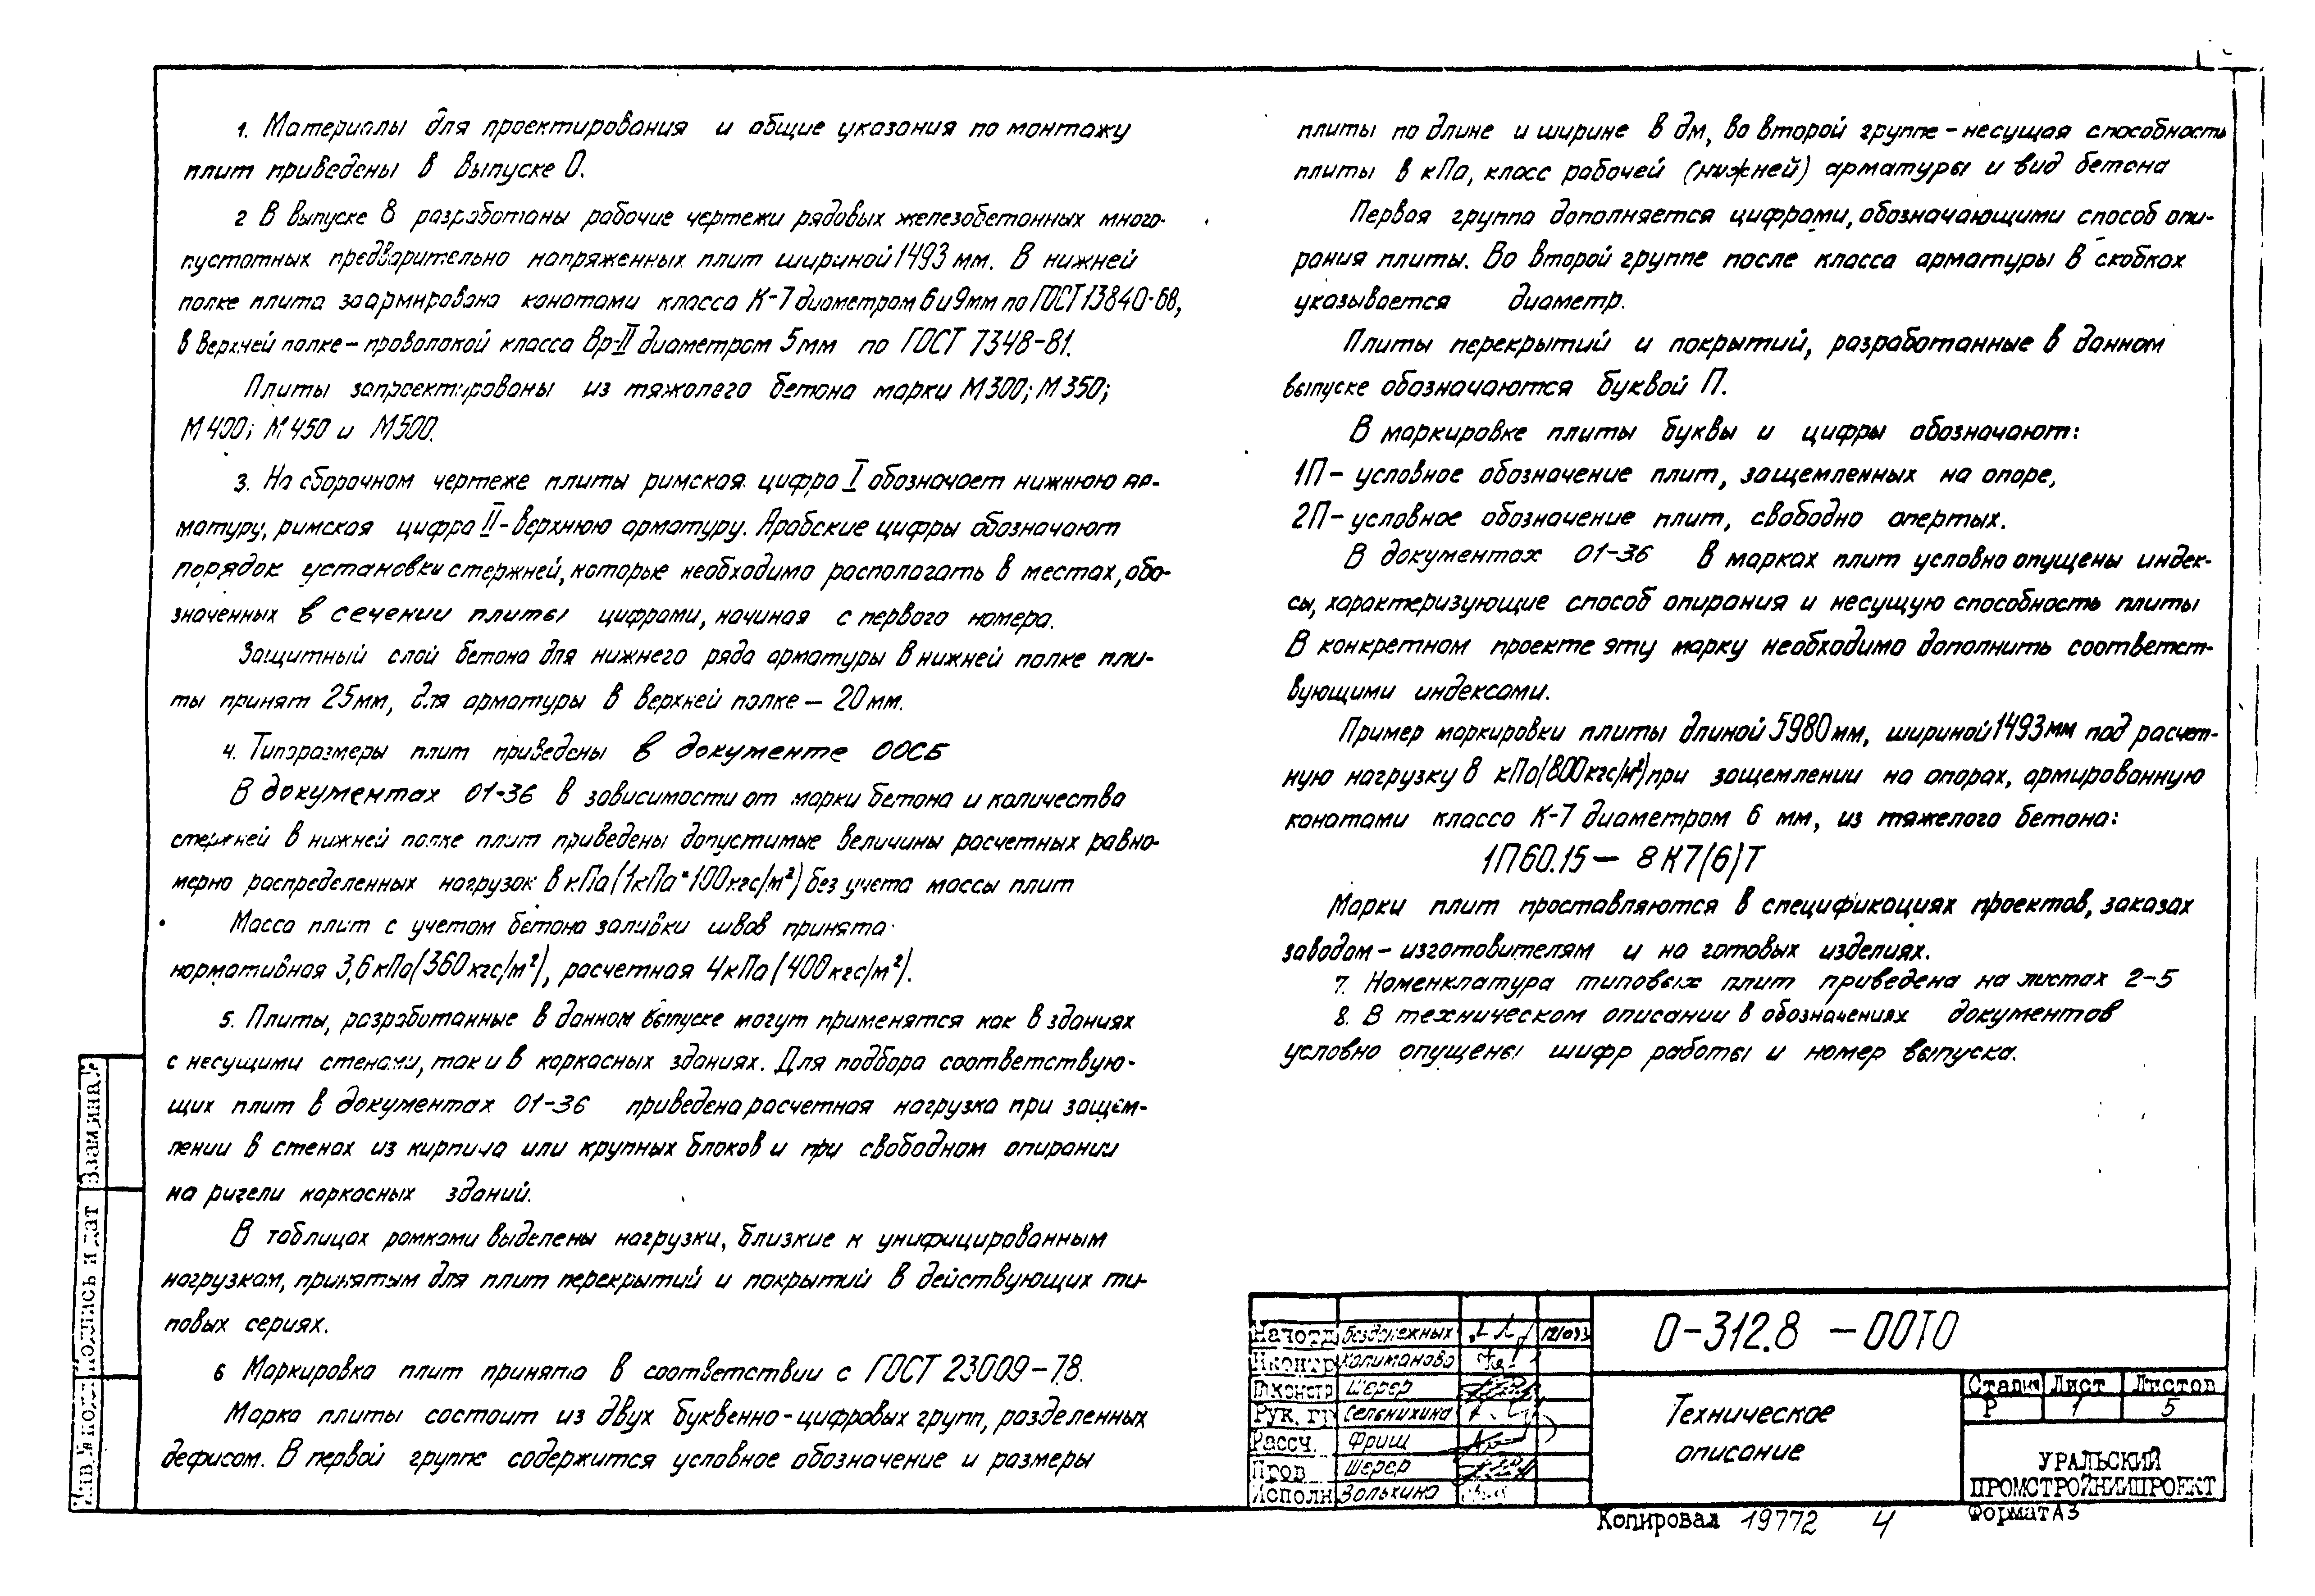 1. Материалы для проектирования и общие указания по монтажу
плит приведены в выпуске 0.
2 В выпуске 8 разработаны рабочие чертежи рядовых железобетонных много-
пустотных предварительно напряженных плит шириной 1493 мм. В нижней
полке плита заармирована канатами класса К-7 диаметром 6 и 9мм по ГОСТ 13840-68,
в верхней полке – проволокой класса Вр-II диаметром 5мм по ГОСТ 7348-81.
Плиты запроектированы из тяжолого бетона марки М300; М350;
М400; М450 и М500.
3. На сборочном чертеже плиты римская цифра I обозначает нижнюю ар-
матуру, римская цифра II-верхнюю арматуру. Арабские цифры обозначают
порядок установки стержней, которые необходимо располагать в местах, обо-
значенных в сечении плиты цифрами, начиная с первого номера.
Защитный слой бетона для нижнего ряда арматуры в нижней полке пли-
ты принят 25мм, для арматуры в верхней полке – 20мм.
4. Типоразмеры плит приведены в документе 00СБ
В документах 01-36 в зависимости от марки бетона и количества
стержней в нижней полке плит приведены допустимые величины расчетных равно-
мерно распределенных нагрузок в кПа (1кПа=100кгс/м²) без учета массы плит
Масса плит с учетом бетона заливки швов принята
нормативная 3,6кПа(360кгс/м²), расчетная 4кПа(400кгс/м²).
5. Плиты, разработанные в данном выпуске могут применятся как в зданиях
с несущими стенами, так и в каркасных зданиях. Для подбора соответствую-
щих плит в документах 01-36 приведена расчетная нагрузка при защем-
лении в стенах из кирпича или крупных блоков и при свободном опирании
на ригели каркасных зданий.
В таблицах рамками выделены нагрузки, близкие к унифицированным
нагрузкам, принятым для плит перекрытий и покрытий в действующих ти-
повых сериях.
6 Маркировка плит принята в соответствии с ГОСТ 23009-78.
Марка плиты состоит из двух буквенно-цифровых групп, разделенных
дефисом. В первой группе содержится условное обозначение и размеры
плиты по длине и ширине в дм, во второй группе – несущая способность
плиты в кПа, класс рабочей (нижней) арматуры и вид бетона
Первая группа дополняется цифрами, обозначающими способ опи-
рания плиты. Во второй группе после класса арматуры в скобках
указывается диаметр.
Плиты перекрытий и покрытий, разработанные в данном
выпуске обозначаются буквой П.
В маркировке плиты буквы и цифры обозначают:
1П – условное обозначение плит, защемленных на опоре,
2П – условное обозначение плит, свободно опертых.
В документах 01-36 в марках плит условно опущены индек-
сы, характеризующие способ опирания и несущую способность плиты
В конкретном проекте эту марку необходимо дополнить соответст-
вующими индексами.
Пример маркировки плиты длиной 5980мм, шириной 1493мм под расчет-
ную нагрузку 8 кПа(800кгс/м²)при защемлении на опорах, армированную
канатами класса К-7 диаметром 6 мм, из тяжелого бетона:
1П60.15 – 8К7(6)Т
Марки плит проставляются в спецификациях проектов, заказах
заводам – изготовителям и на готовых изделиях.
7. Номенклатура типовых плит приведена на листах 2-5
8. В техническом описании в обозначениях документов
условно опущены шифр работы и номер выпуска.
Взам инв.№
Подпись и дат
Инв.№ подл
Нач отд Безденежных
Н контр Калиманова
Гл констр Шерер
Рук. гр Сельнихина
Рассч. Фриш
Пров Шерер
Исполн Волькина
0-312.8 – 00ТО
Техническое
описание
Стадия Лист Листов
Р 1 5
УРАЛЬСКИЙ
ПРОМСТРОЙНИИПРОЕКТ
Копировал 19772 4 Формат А3